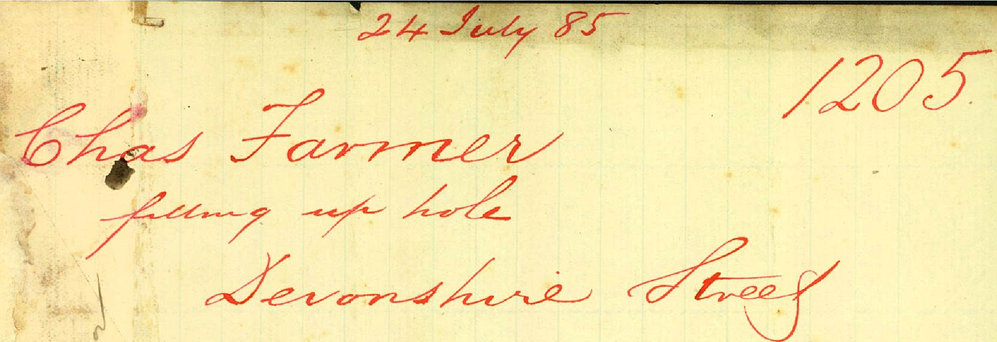 24 July 85
1205.
Chas Farmer
filling up hole
Devonshire Street